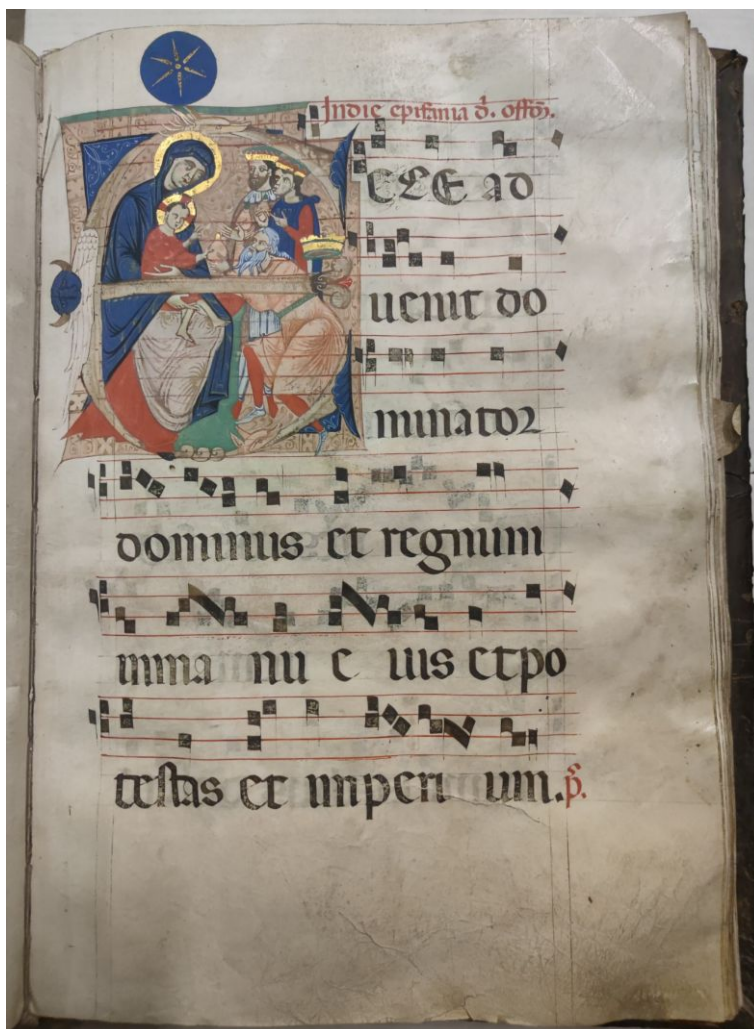 In die epifania d̄. offm̄.
ECCE AD
uenit do
minator
dominus et regnum
inma nu e uis et po
testas et imperi um. p̄.